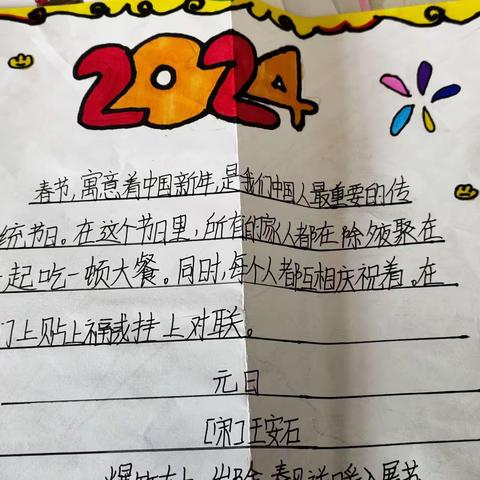 2024
春节,寓意着中国新年,是我们中国人最重要的传
统节日。在这个节日里,所有的家人都在除夕夜聚在
一起吃一顿大餐。同时,每个人都互相庆祝着。在
门上贴上福或挂上对联。
元日
[宋]王安石